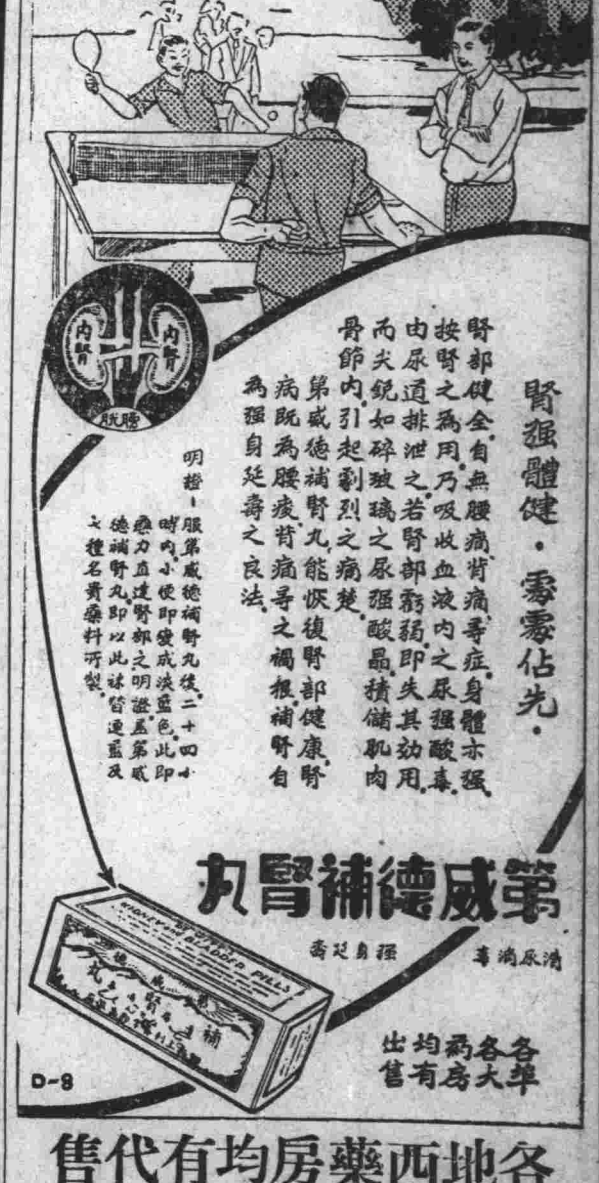 腎强體健．處處佔先．
腎部健全．自無腰痛．背痛等症．身體亦强．
按腎之為用．乃吸收血液内之尿强酸毒．
由尿道排泄之．若腎部虧弱．即失其効用．
而尖銳如碎玻璃之尿强酸晶．積儲肌肉
骨節内．引起劇烈之痛楚．
第威德補腎丸．能恢復腎部健康．腎
病既為腰痠．背痛等之禍根．補腎自
為强身延壽之良法．
明證－服第威德補腎丸後．二十四小
時内．小便即變成淡藍色．此即
藥力直達腎部之明證．蓋第威
德補腎丸．即以此
七種名貴藥料所製．
内腎
内腎
膀胱
第威德補腎丸
清尿消毒
强身延壽
KIDNEY AND BLADDER PILLS
各埠
各大
药房
均有
出售
D-8
各地西藥房均有代售